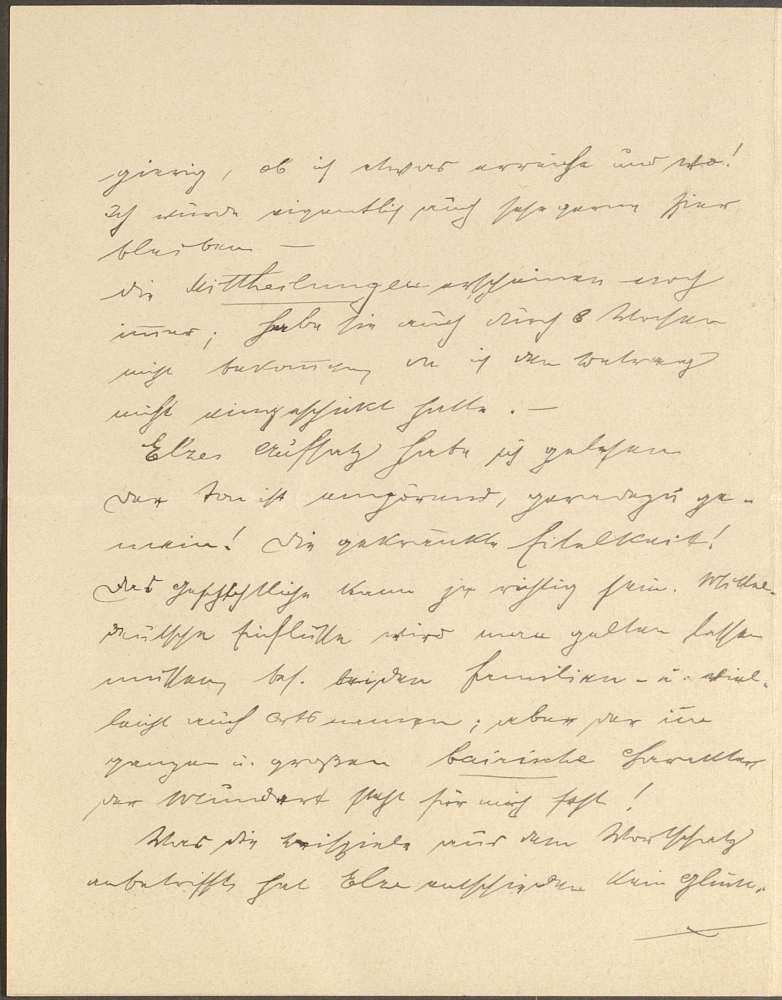 gierig, ob ich etwas erreiche und wo!
Ich würde eigentlich auch sehr gerne hier
bleiben —
die Mittheilungen erscheinen noch
immer; habe sie auch durch 8 Wochen
nicht bekommen, da ich den Betrag
nicht eingeschickt hatte. —
Elzes Aufsatz habe ich gelesen
der Ton ist empörend, geradezu ge-
mein! Die gekränkte Eitelkeit!
Das Geschichtliche kann ja richtig sein. Mittel-
deutsche Einflüsse wird man gelten lassen
müssen, bes. bei den Familien- u. viel-
leicht auch Ortsnamen; aber der im
ganzen u. großen bairische Charakter
der Mundart steht für mich fest!
Was die Beispiele aus dem Wortschatz
anbetrifft, hat Elze entschieden kein Glück.